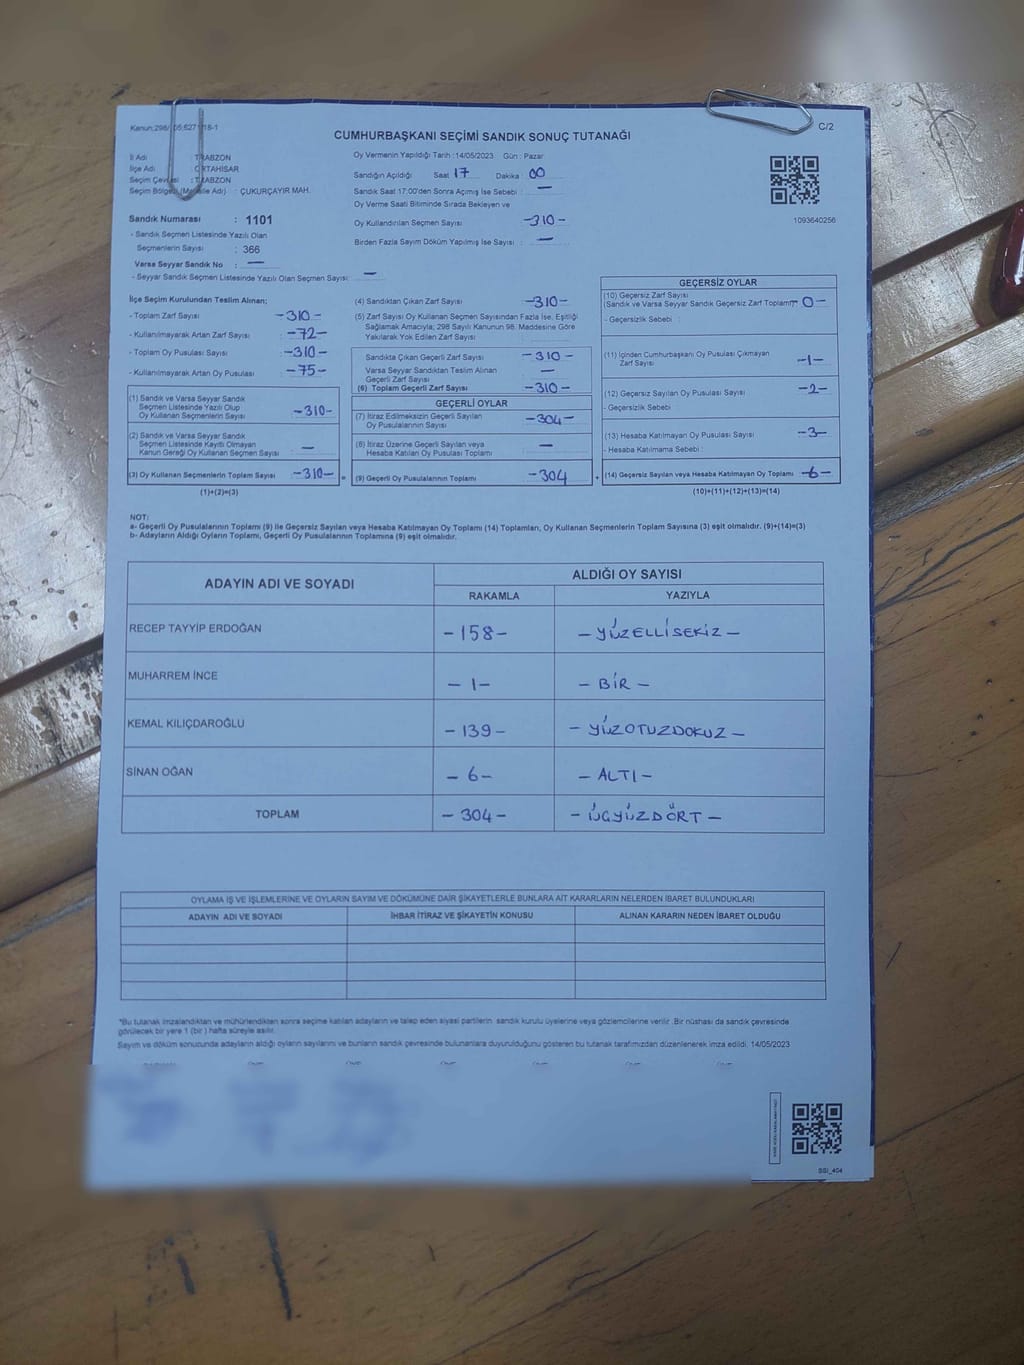 Kanun:298/ 05;6271/18-1
C/2
CUMHURBAŞKANI SEÇİMİ SANDIK SONUÇ TUTANAĞI
İli Adı : TRABZON
İlçe Adı : ORTAHİSAR
Seçim Çevresi : TRABZON
Seçim Bölgesi (Mahalle Adı) : ÇUKURÇAYIR MAH.
Sandık Numarası : 1101
- Sandık Seçmen Listesinde Yazılı Olan
Seçmenlerin Sayısı : 366
Varsa Seyyar Sandık No : —
- Seyyar Sandık Seçmen Listesinde Yazılı Olan Seçmen Sayısı: —
Oy Vermenin Yapıldığı Tarih :14/05/2023 Gün : Pazar
Sandığın Açıldığı Saat 17 Dakika 00
Sandık Saat 17:00'den Sonra Açımış İse Sebebi : —
Oy Verme Saati Bitiminde Sırada Bekleyen ve
Oy Kullandırılan Seçmen Sayısı -310-
Birden Fazla Sayım Döküm Yapılmış İse Sayısı : —
1093640256
İlçe Seçim Kurulundan Teslim Alınan;
- Toplam Zarf Sayısı -310-
- Kullanılmayarak Artan Zarf Sayısı -72-
- Toplam Oy Pusulası Sayısı -310-
- Kullanılmayarak Artan Oy Pusulası -75-
(1) Sandık ve Varsa Seyyar Sandık
Seçmen Listesinde Yazılı Olup
Oy Kullanan Seçmenlerin Sayısı -310-
(2) Sandık ve Varsa Seyyar Sandık
Seçmen Listesinde Kayıtlı Olmayan
Kanun Gereği Oy Kullanan Seçmen Sayısı —
(3) Oy Kullanan Seçmenlerin Toplam Sayısı -310- =
(1)+(2)=(3)
(4) Sandıktan Çıkan Zarf Sayısı -310-
(5) Zarf Sayısı Oy Kullanan Seçmen Sayısından Fazla İse, Eşitliği
Sağlamak Amacıyla; 298 Sayılı Kanunun 98. Maddesine Göre
Yakılarak Yok Edilen Zarf Sayısı :
Sandıkta Çıkan Geçerli Zarf Sayısı -310-
Varsa Seyyar Sandıktan Teslim Alınan
Geçerli Zarf Sayısı —
(6) Toplam Geçerli Zarf Sayısı -310-
GEÇERLİ OYLAR
(7) İtiraz Edilmeksizin Geçerli Sayılan
Oy Pusulalarının Sayısı -304-
(8) İtiraz Üzerine Geçerli Sayılan veya
Hesaba Katılan Oy Pusulası Toplamı —
(9) Geçerli Oy Pusulalarının Toplamı -304 +
GEÇERSİZ OYLAR
(10) Geçersiz Zarf Sayısı
(Sandık ve Varsa Seyyar Sandık Geçersiz Zarf Toplamı) -0-
- Geçersizlik Sebebi :
(11) İçinden Cumhurbaşkanı Oy Pusulası Çıkmayan
Zarf Sayısı -1-
(12) Geçersiz Sayılan Oy Pusulası Sayısı -2-
- Geçersizlik Sebebi
(13) Hesaba Katılmayan Oy Pusulası Sayısı -3-
- Hesaba Katılmama Sebebi :
(14) Geçersiz Sayılan veya Hesaba Katılmayan Oy Toplamı -6-
(10)+(11)+(12)+(13)=(14)
NOT:
a- Geçerli Oy Pusulalarının Toplamı (9) ile Geçersiz Sayılan veya Hesaba Katılmayan Oy Toplamı (14) Toplamları, Oy Kullanan Seçmenlerin Toplam Sayısına (3) eşit olmalıdır. (9)+(14)=(3)
b- Adayların Aldığı Oyların Toplamı, Geçerli Oy Pusulalarının Toplamına (9) eşit olmalıdır.
ADAYIN ADI VE SOYADI ALDIĞI OY SAYISI
RAKAMLA YAZIYLA
RECEP TAYYİP ERDOĞAN -158- -YÜZELLİSEKİZ-
MUHARREM İNCE -1- -BİR-
KEMAL KILIÇDAROĞLU -139- -YÜZOTUZDOKUZ-
SİNAN OĞAN -6- -ALTI-
TOPLAM -304- -ÜÇYÜZDÖRT-
OYLAMA İŞ VE İŞLEMLERİNE VE OYLARIN SAYIM VE DÖKÜMÜNE DAİR ŞİKAYETLERLE BUNLARA AİT KARARLARIN NELERDEN İBARET BULUNDUKLARI
ADAYIN ADI VE SOYADI İHBAR İTİRAZ VE ŞİKAYETİN KONUSU ALINAN KARARIN NEDEN İBARET OLDUĞU
*Bu tutanak imzalandıktan ve mühürlendikten sonra seçime katılan adayların ve talep eden siyasi partilerin sandık kurulu üyelerine veya gözlemcilerine verilir .Bir nüshası da sandık çevresinde
görülecek bir yere 1 (bir ) hafta süreyle asılır.
Sayım ve döküm sonucunda adayların aldığı oyların sayılarını ve bunların sandık çevresinde bulunanlara duyurulduğunu gösteren bu tutanak tarafımızdan düzenlenerek imza edildi. 14/05/2023
SSI_404